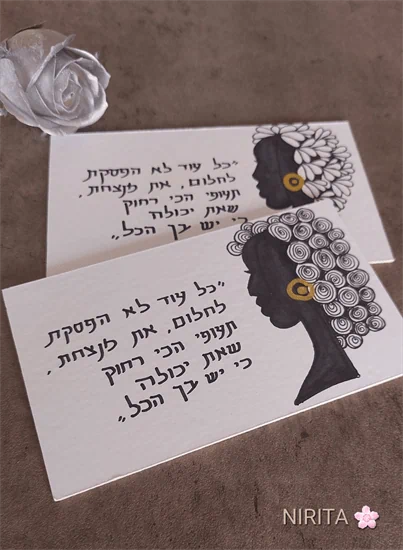 "כל עוד לא הפסקת
לחלום, את מנצחת.
תעופי הכי רחוק
שאת יכולה
כי יש בך הכל"
"כל עוד לא הפסקת
לחלום, את מנצחת.
תעופי הכי רחוק
שאת יכולה
כי יש בך הכל"
NIRITA